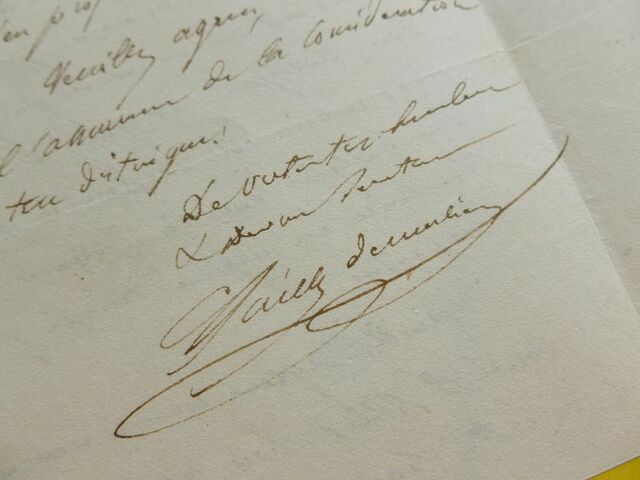 Veuillez agréer,
l'assurance de la considération
très distinguée
De votre très humble
& dévoué serviteur